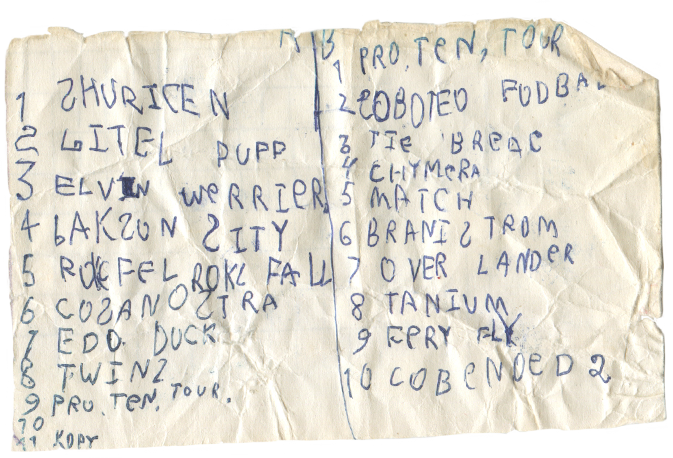 1 SHURICEN
2 LITEL PUPP
3 ELVIN WERRIER
4 bAKSON SITY
5 ROCFEL ROKL FALL
6 COSANOSTRA
7 EDD DUCK
8 TWINS
9 PRO. TEN. TOUR.
10
11 KOPY
B
1 PRO. TEN, TOUR
2 COBOTEO FODBAL
3 TIE BREAC
4 CHYMERA
5 MATCH
6 BRANISTROM
7 OVER LANDER
8 TANIUM
9 FERY FLY
10 COBENDED 2